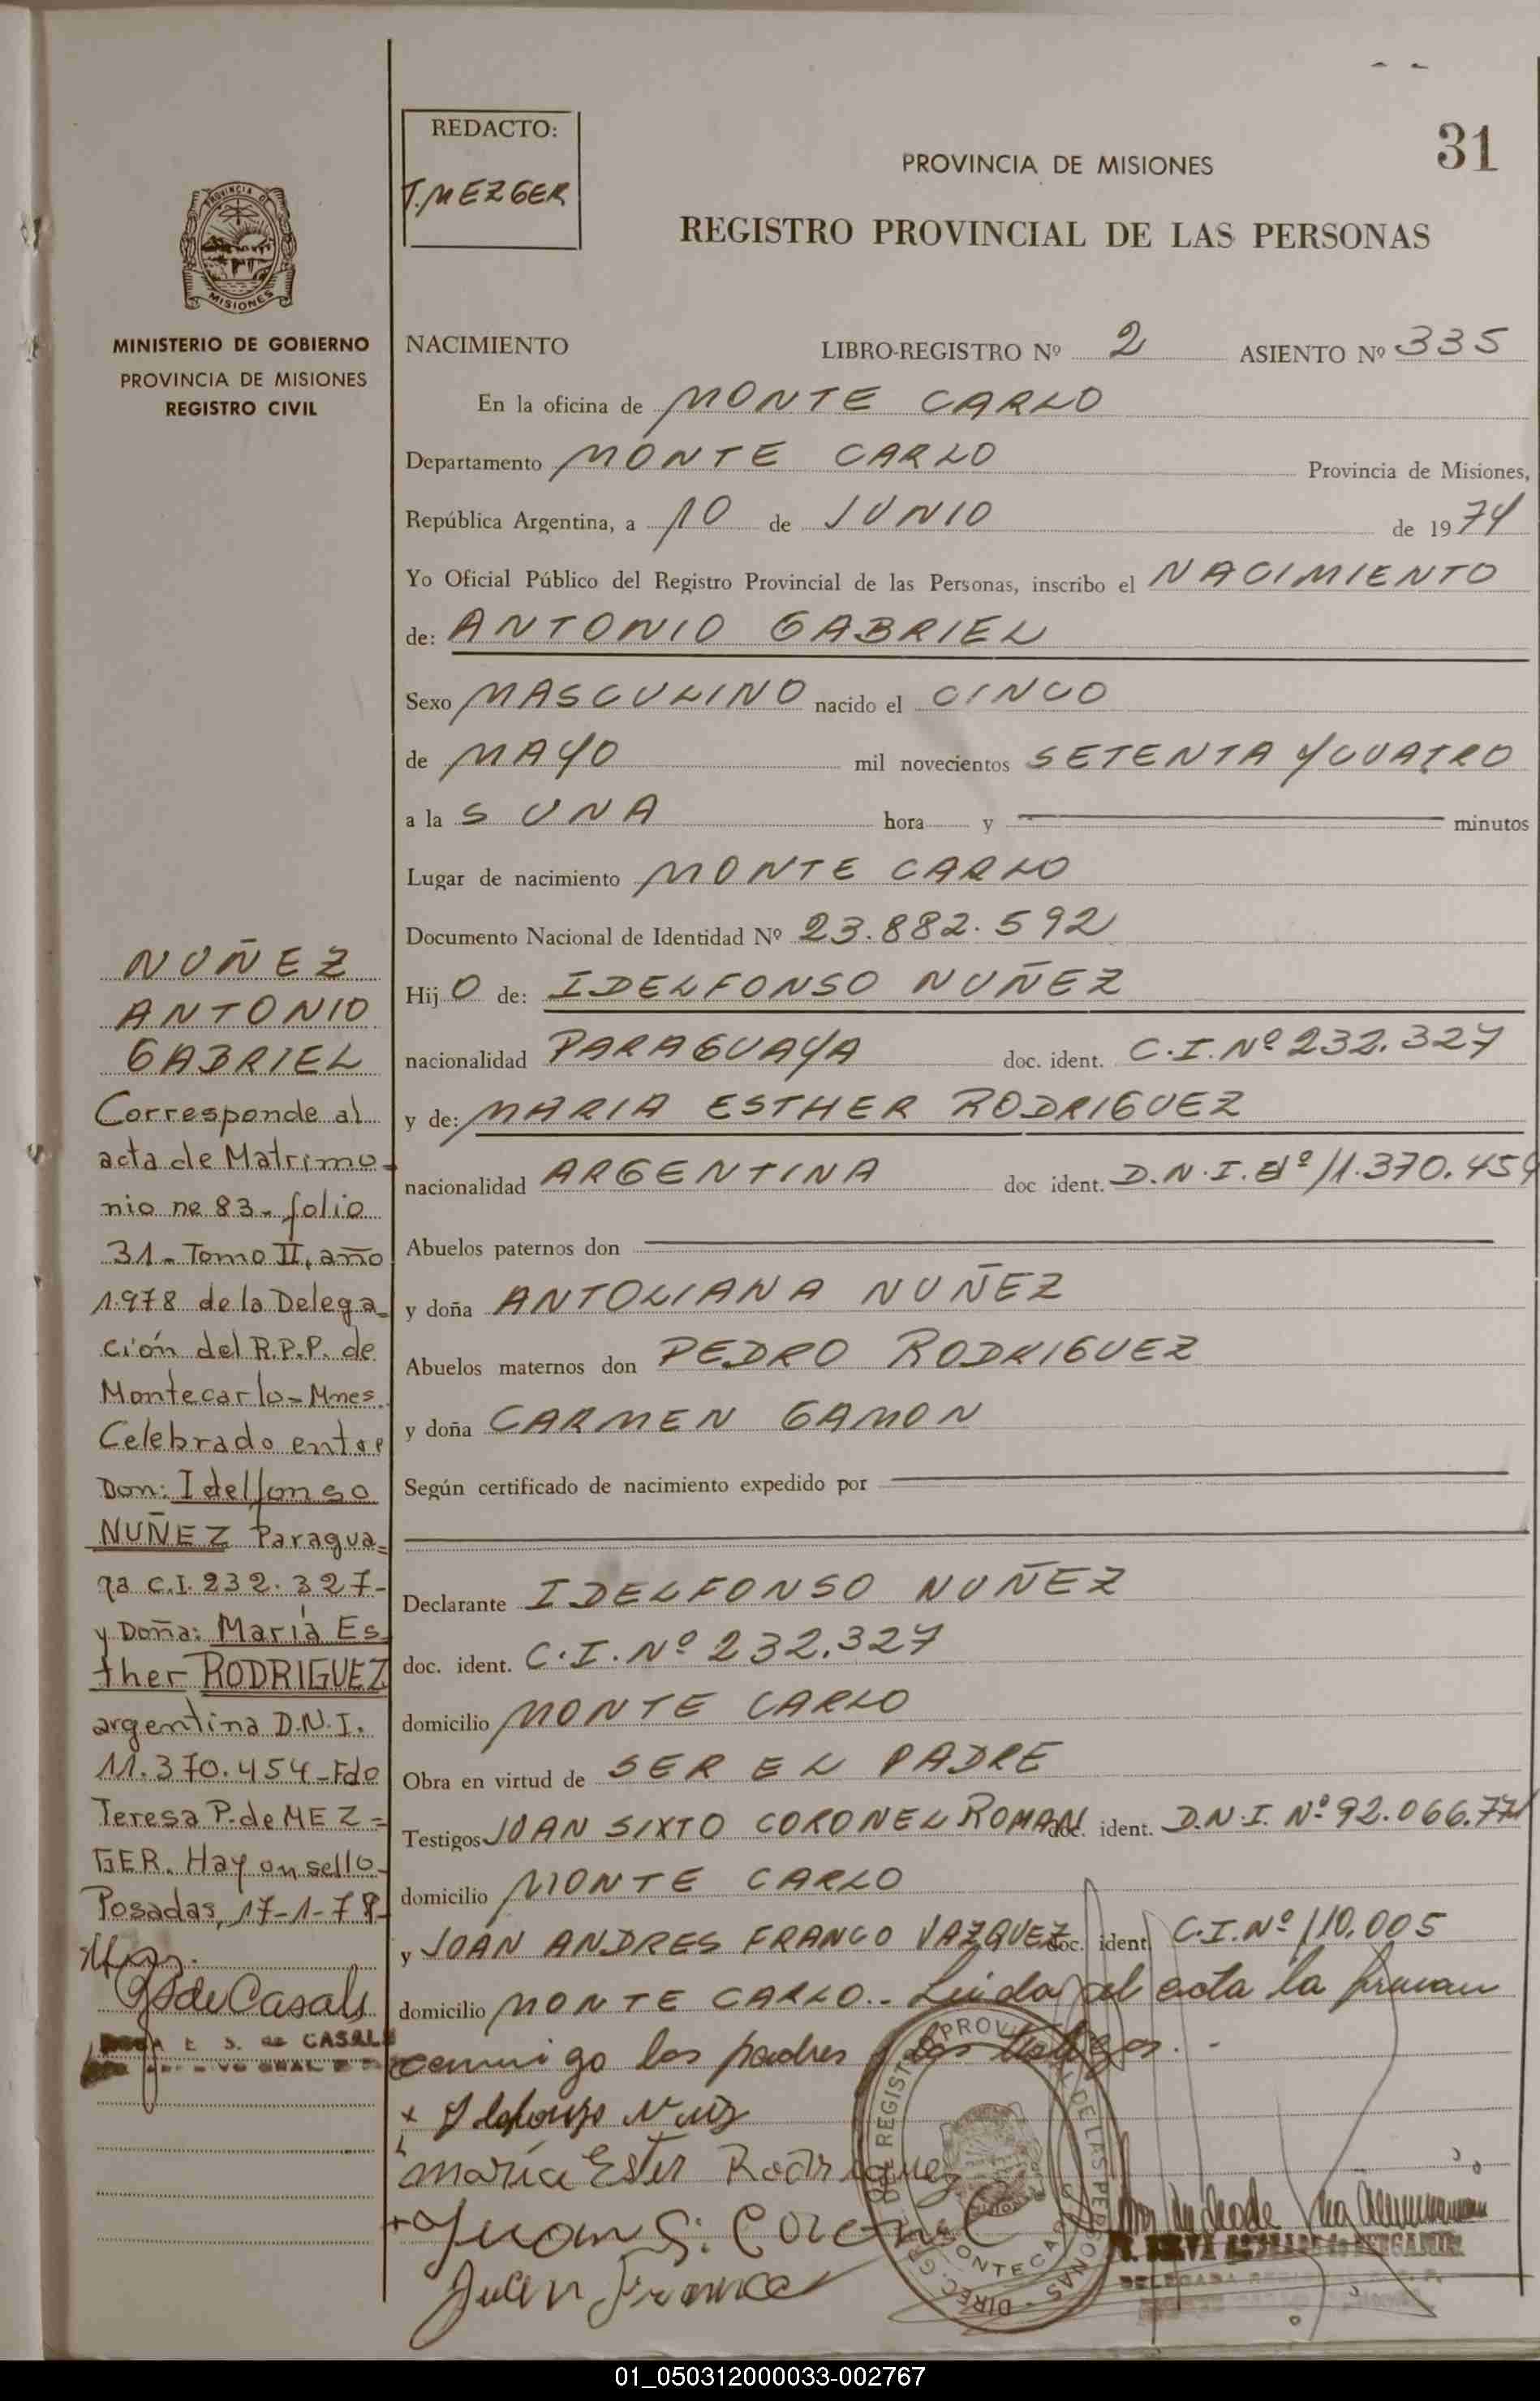 REDACTO:
T. MEZGER
PROVINCIA DE MISIONES
31
REGISTRO PROVINCIAL DE LAS PERSONAS
PROVINCIA DE
MISIONES
MINISTERIO DE GOBIERNO
PROVINCIA DE MISIONES
REGISTRO CIVIL
NACIMIENTO LIBRO-REGISTRO Nº 2 ASIENTO Nº 335
En la oficina de MONTE CARLO
Departamento MONTE CARLO Provincia de Misiones,
República Argentina, a 10 de JUNIO de 1974
Yo Oficial Público del Registro Provincial de las Personas, inscribo el NACIMIENTO
de: ANTONIO GABRIEL
Sexo MASCULINO nacido el CINCO
de MAYO mil novecientos SETENTA Y CUATRO
a la S UNA hora y minutos
Lugar de nacimiento MONTE CARLO
Documento Nacional de Identidad Nº 23.882.592
Hij O de: IDELFONSO NUÑEZ
nacionalidad PARAGUAYA doc. ident. C.I. Nº 232.327
y de: MARIA ESTHER RODRIGUEZ
nacionalidad ARGENTINA doc ident. D.N.I. Nº 11.370.454
Abuelos paternos don
y doña ANTOLIANA NUÑEZ
Abuelos maternos don PEDRO RODRIGUEZ
y doña CARMEN GAMON
Según certificado de nacimiento expedido por
Declarante IDELFONSO NUÑEZ
doc. ident. C.I. Nº 232.327
domicilio MONTE CARLO
Obra en virtud de SER EL PADRE
Testigos JUAN SIXTO CORONEL ROMAN doc. ident. D.N.I. Nº 92.066.771
domicilio MONTE CARLO
y JUAN ANDRES FRANCO VAZQUEZ doc. ident. C.I. Nº 110.005
domicilio MONTE CARLO.- Leida el acta la firman
conmigo los padres y los testigos.-
NUÑEZ
ANTONIO
GABRIEL
Corresponde al
acta de Matrimo-
nio nº 83- folio
31- Tomo II, año
1.978 de la Delega-
ción del R.P.P. de
Montecarlo-Mnes.
Celebrado entre
Don: Idelfonso
NUÑEZ Paragua=
ya C.I. 232.327-
y Doña: María Es-
ther RODRIGUEZ
argentina D.N.I.
11.370.454-Fdo
Teresa P. de MEZ=
GER. Hay un sello-
Posadas, 17-1-78-
de Casals
S. de CASALS
María Ester Rodriguez
Juan S. Coronel
Juan Franco
01_050312000033-002767